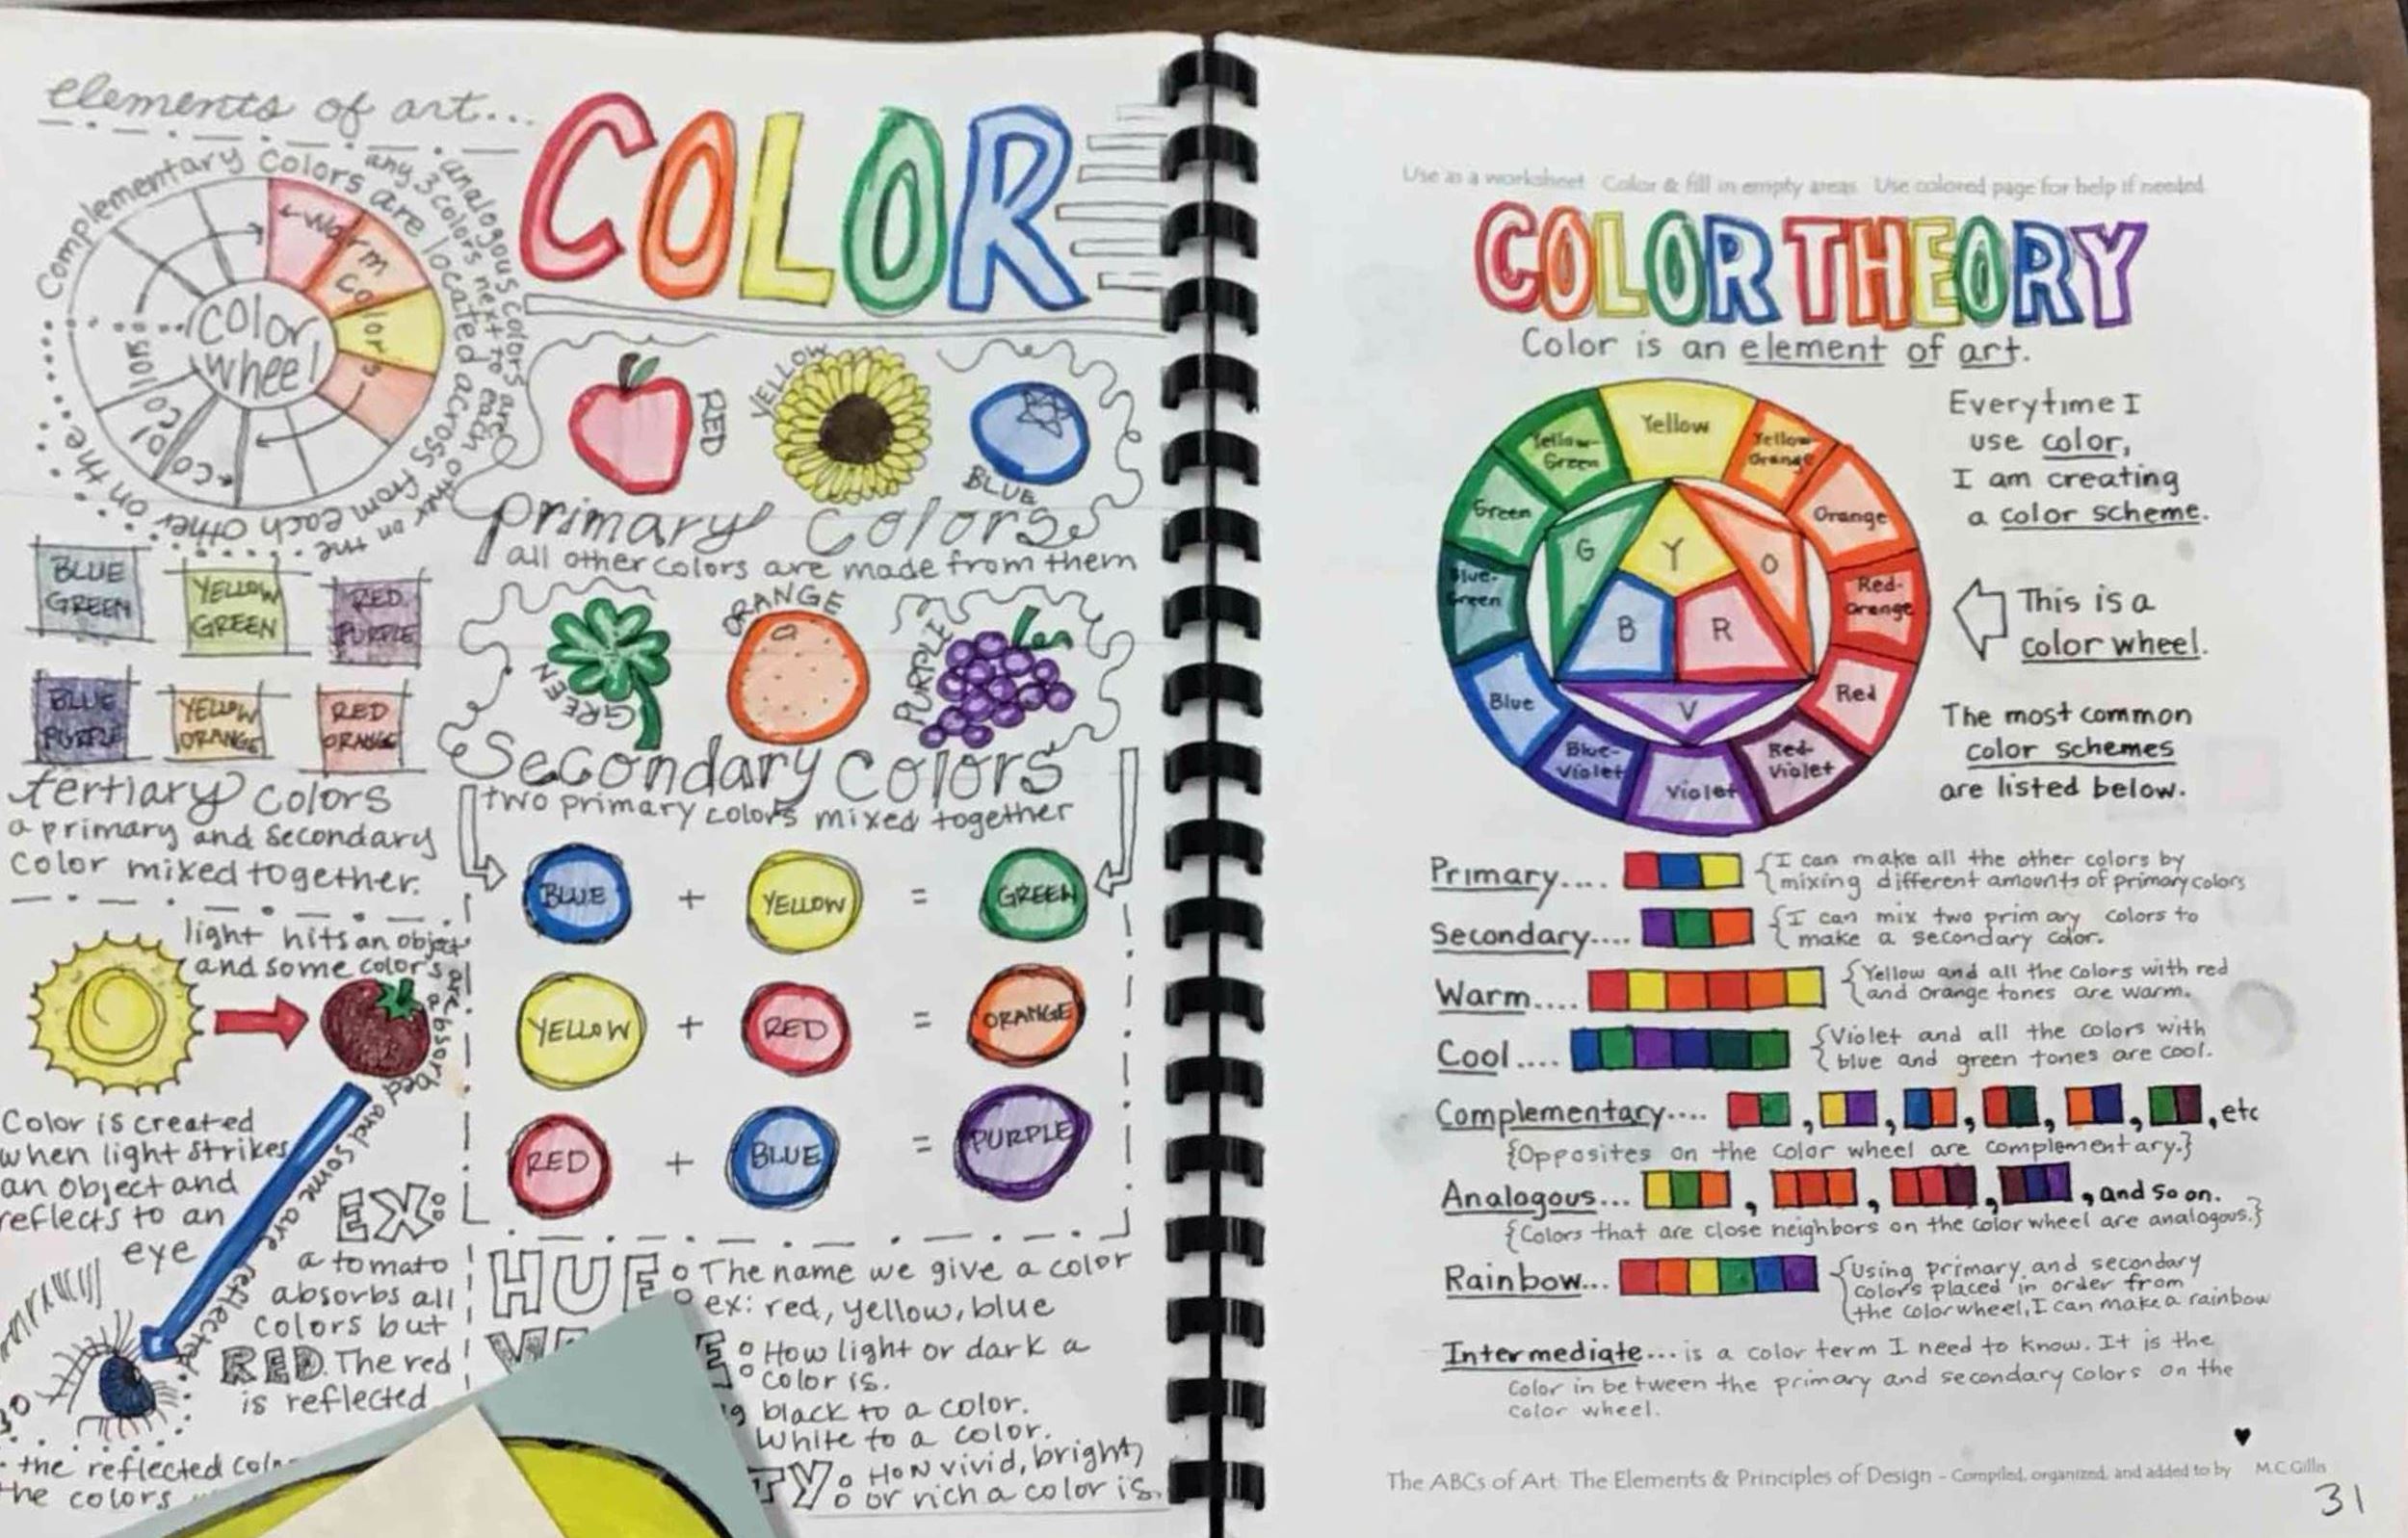 elements of art...
COLOR
Complementary Colors are located across from each other on the
analogous colors are
any 3 colors next to each other on the
warm colors
color
wheel
cool colors
RED
YELLOW
BLUE
primary colors
all other colors are made from them
BLUE
GREEN
YELLOW
GREEN
RED
PURPLE
BLUE
PURPLE
YELLOW
ORANGE
RED
ORANGE
tertiary colors
a primary and secondary
color mixed together.
GREEN
ORANGE
PURPLE
Secondary colors
two primary colors mixed together
BLUE + YELLOW = GREEN
YELLOW + RED = ORANGE
RED + BLUE = PURPLE
light hits an object
and some colors are absorbed and some are reflected
Color is created
when light strikes
an object and
reflects to an
eye
EX:
a tomato
absorbs all
colors but
RED. The red
is reflected
the reflected
the colors
HUE: The name we give a color
ex: red, yellow, blue
How light or dark a
color is.
black to a color.
white to a color.
TY: How vivid, bright,
or rich a color is.
Use as a worksheet Color & fill in empty areas Use colored page for help if needed
COLOR THEORY
Color is an element of art.
Yellow
Yellow-
Orange
Orange
Red-
Orange
Red
Red-
Violet
Violet
Blue-
Violet
Blue
Blue-
Green
Green
Yellow-
Green
G
Y
O
B
R
V
Everytime I
use color,
I am creating
a color scheme.
This is a
color wheel.
The most common
color schemes
are listed below.
Primary.... {I can make all the other colors by
mixing different amounts of primary colors
Secondary.... {I can mix two primary colors to
make a secondary color.
Warm.... {Yellow and all the colors with red
and orange tones are warm.
Cool.... {Violet and all the colors with
blue and green tones are cool.
Complementary.... , , , , , , etc
{Opposites on the color wheel are complementary.}
Analogous... , , , , and so on.
{Colors that are close neighbors on the color wheel are analogous.}
Rainbow... {Using primary and secondary
colors placed in order from
the color wheel, I can make a rainbow
Intermediate... is a color term I need to know. It is the
color in between the primary and secondary colors on the
color wheel.
The ABCs of Art: The Elements & Principles of Design - Compiled, organized, and added to by M.C.Gillis
31